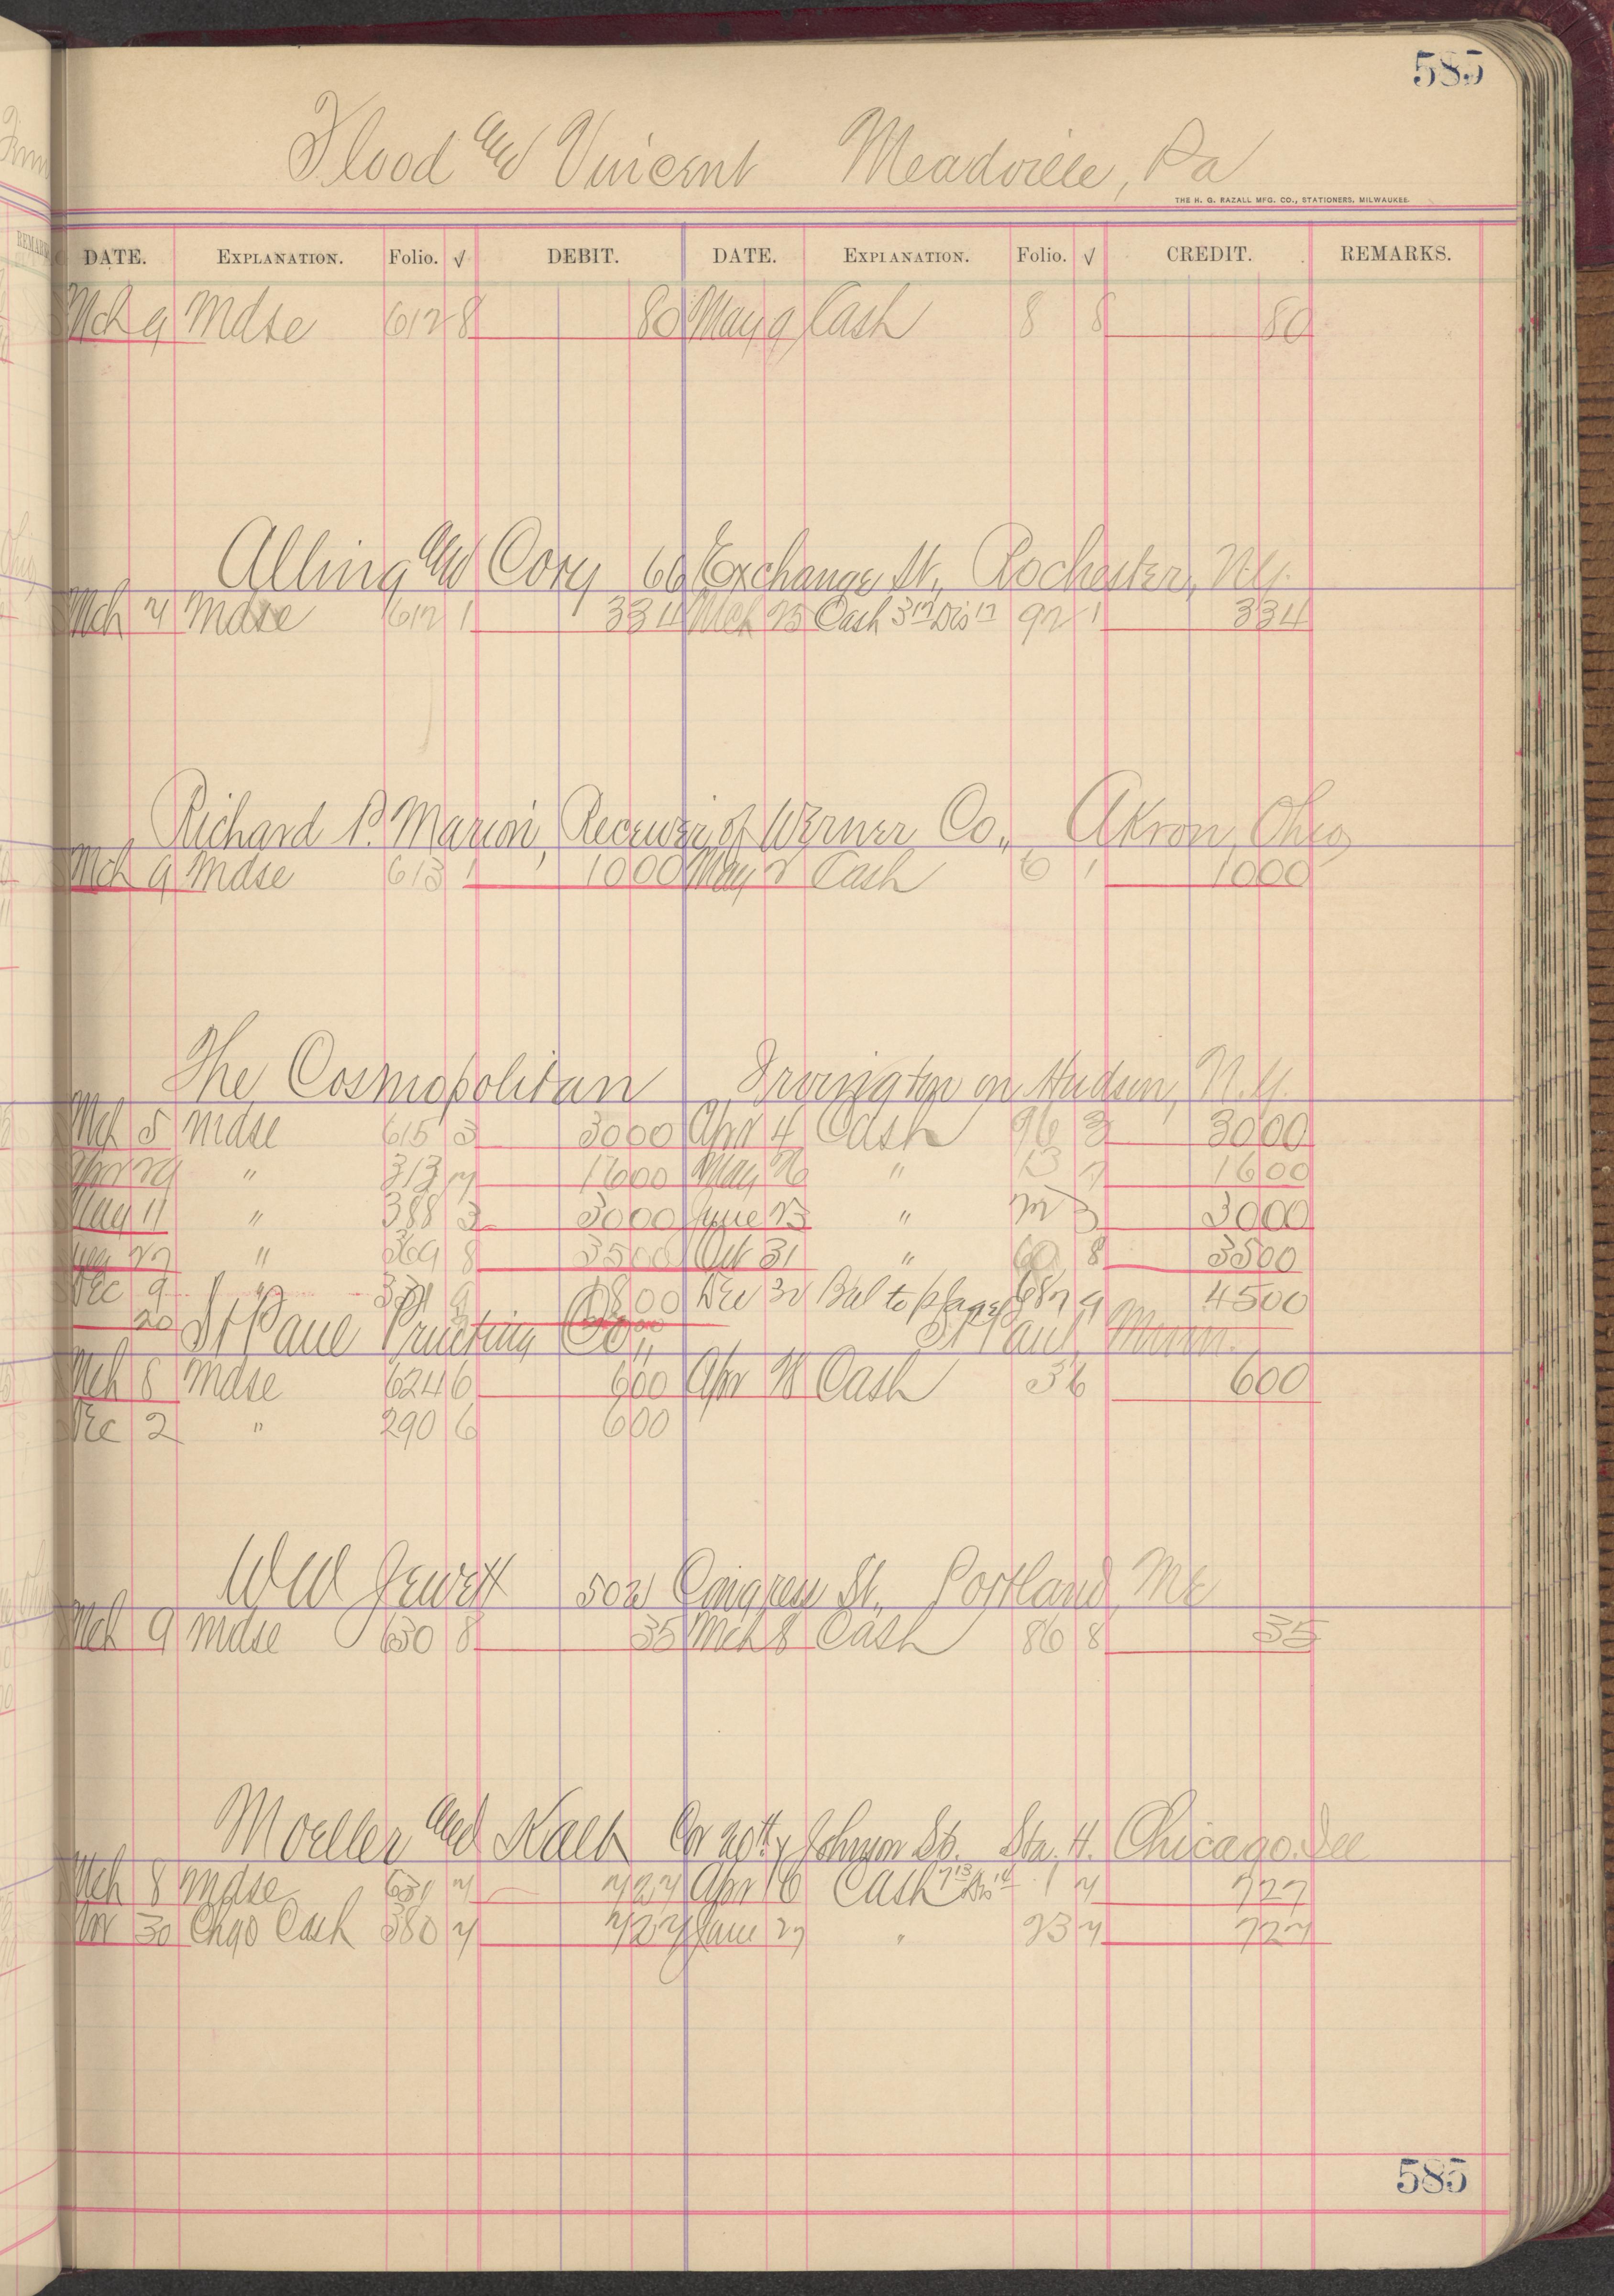 585
Flood and Vincent Meadville, Pa
THE H. G. RAZALL MFG. CO., STATIONERS, MILWAUKEE.
DATE. EXPLANATION. Folio. √ DEBIT. DATE. EXPLANATION. Folio. √ CREDIT. REMARKS.
Mch 9 Mdse 612 8 80 May 9 Cash 8 8 80
Alling and Cory 66 Exchange St, Rochester, N.Y.
Mch 4 Mdse 612 1 334 Mch 25 Cash 3 17 Dis 17 92 1 334
Richard P. Marion, Receiver of Werner Co., Akron, Ohio
Mch 9 Mdse 613 1 1000 May 2 Cash 6 1 1000
The Cosmopolitan Irvington on Hudson, N.Y.
Mch 5 Mdse 615 3 3000 Apr 4 Cash 96 3 3000
Apr 29 " 313 7 1600 May 26 " 13 7 1600
May 11 " 388 3 3000 June 23 " 3 3000
27 " 369 8 3500 Oct 31 " 60 8 3500
Dec 9 " 331 9 00 Dec 30 Bal to page 687 9 4500
20
St Paul Printing Co., St Paul, Minn.
Mch 8 Mdse 624 6 600 Apr 28 Cash 3 6 600
Dec 2 " 290 6 600
W W Jewett 502 Congress St, Portland, Me
Mch 9 Mdse 630 8 35 Mch 8 Cash 86 8 35
Moeller and Kalb Cor 20th & Johnson St. Sta. H. Chicago Ill
Mch 8 Mdse 631 7 727 Apr 6 Cash 7 13 Dis 14 1 7 727
30 Chgo Cash 380 7 727 June 27 " 23 7 727
585